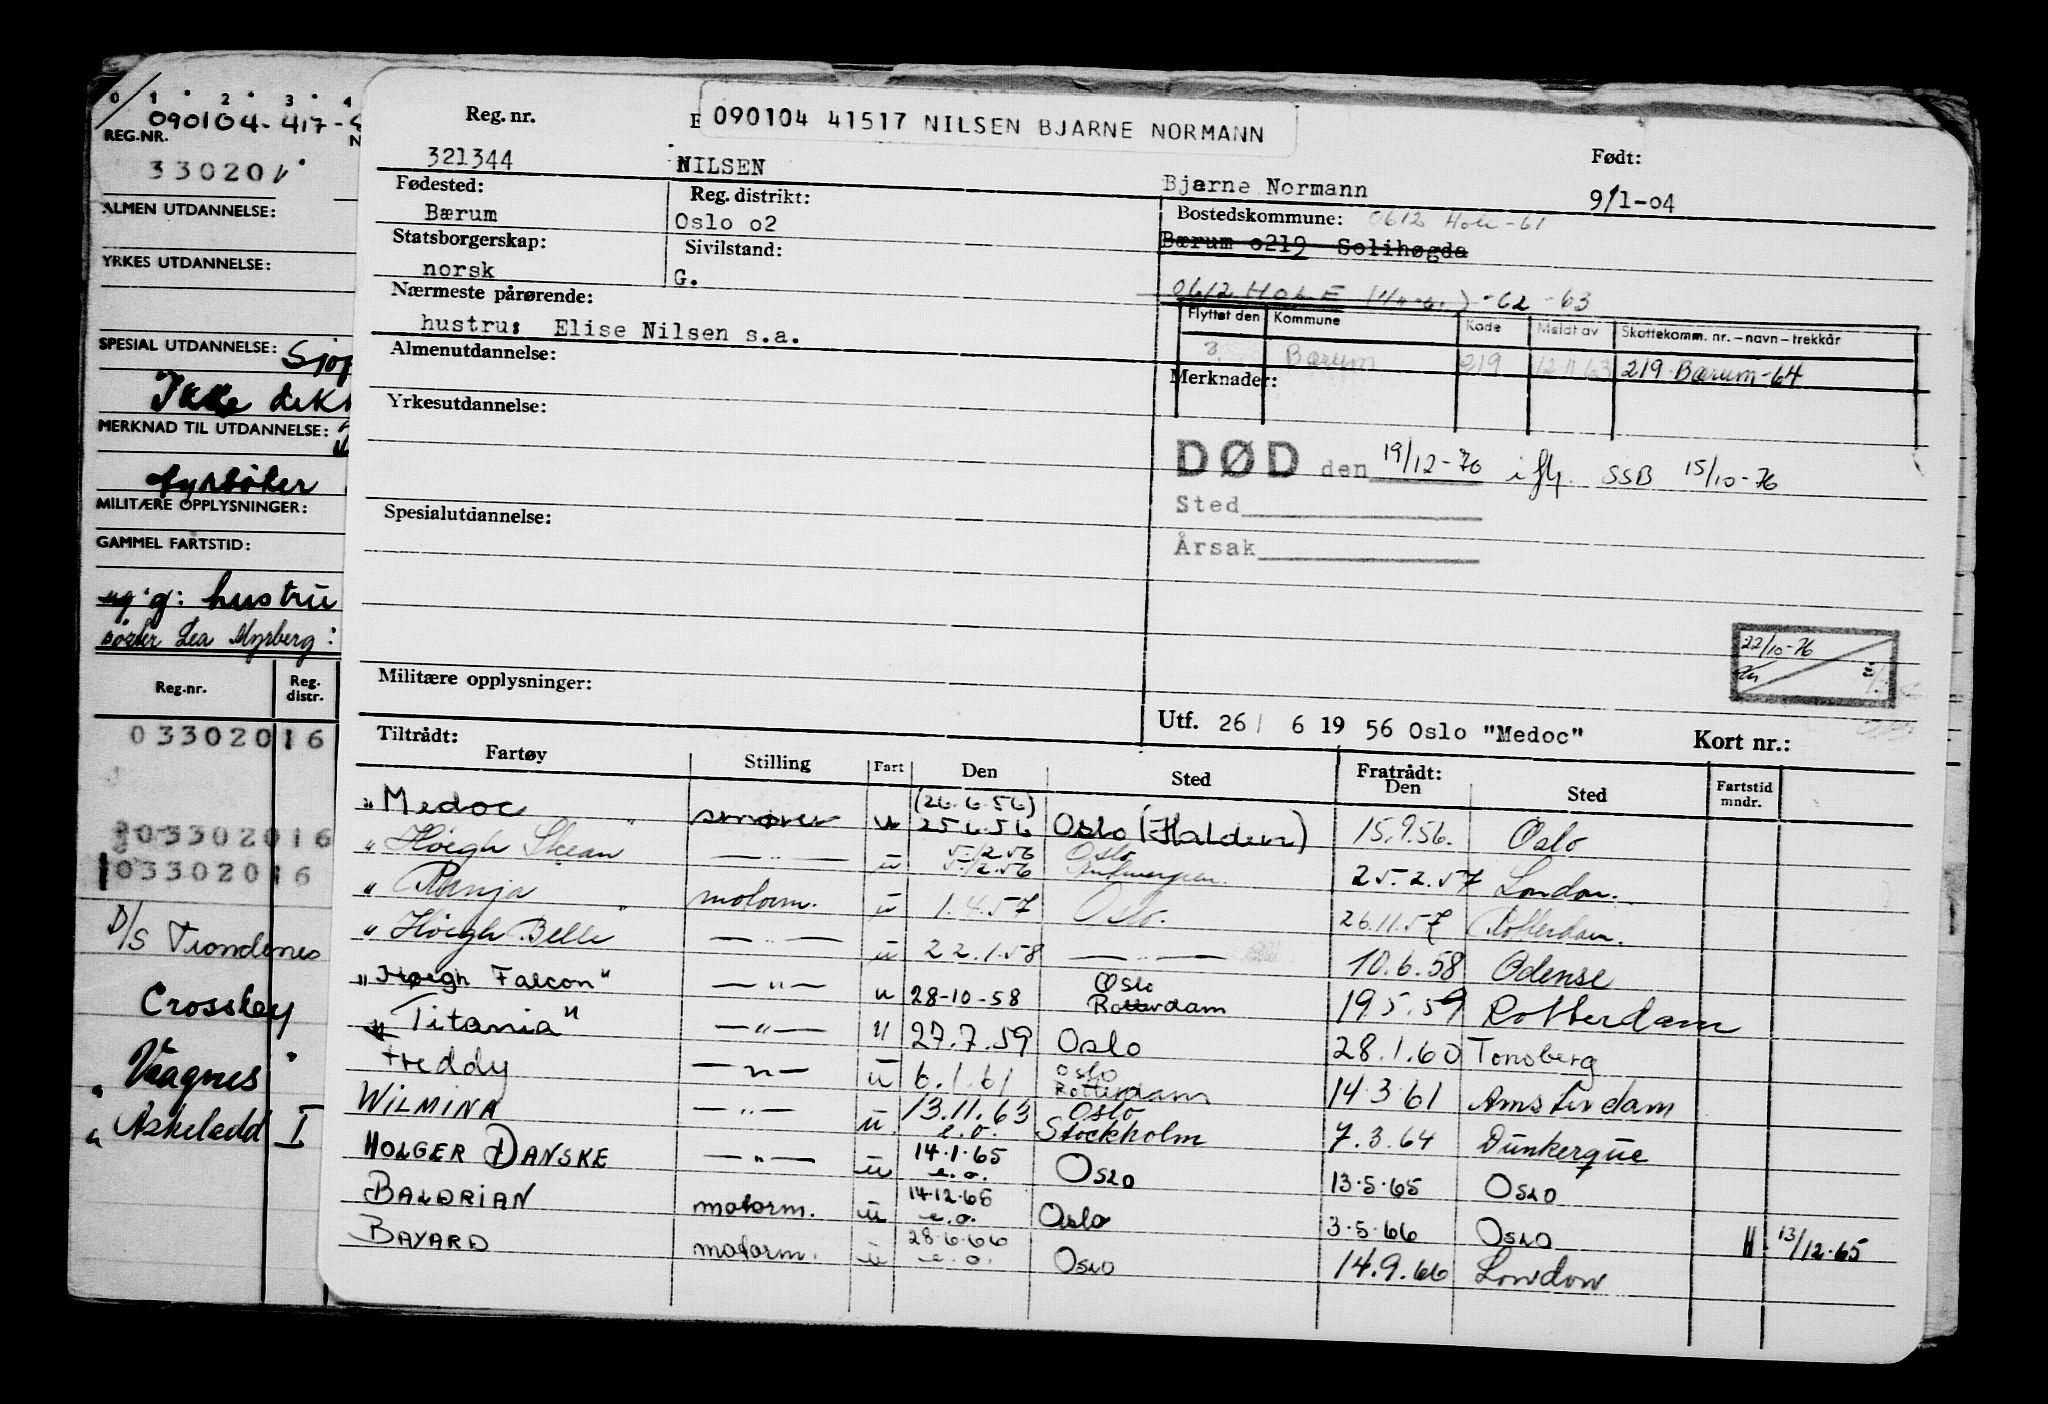 0 1 2 3 4
090104-417-
REG.NR.
330201
ALMEN UTDANNELSE:
YRKES UTDANNELSE:
SPESIAL UTDANNELSE:
Ikke
MERKNAD TIL UTDANNELSE:
fyrbøter
MILITÆRE OPPLYSNINGER:
GAMMEL FARTSTID:
ug. g: hustru
søster Lea Myrberg:
Reg.nr. Reg. distr.
03302016
03302016
03302016
D/S Trondenes
Crossley
"Vaagnes"
" Askeladd I
090104 41517 NILSEN BJARNE NORMANN
Reg. nr.
321344 NILSEN Bjarne Normann
Født:
9/1-04
Fødested: Reg. distrikt: Bostedskommune: 0612 Hole-61
Bærum Oslo o2 Bærum o219 Solihøgda
Statsborgerskap: Sivilstand:
norsk G. 0612 HOLE -62 -63
Nærmeste pårørende:
hustru: Elise Nilsen s.a.
Flyttet den Kommune Kode Meldt av Skattekomm. nr. – navn – trekkår
3. Bærum 219 12 11 63 219 Bærum-64
Almenutdannelse: Merknader:
Yrkesutdannelse:
DØD den 19/12-76 iflg. SSB 15/10-76
Sted
Årsak
Spesialutdannelse:
22/10-76
Militære opplysninger:
Utf. 26/ 6 19 56 Oslo "Medoc" Kort nr.:
Tiltrådt: Fratrådt:
Fartøy Stilling Fart Den Sted Den Sted Fartstid mndr.
(26.6.56)
"Medoc" smører u 25.6.56 Oslo (Halden) 15.9.56. Oslo
5.12.56 Oslo
"Höegh — " — u 5.12.56 25.2.57 London.
" Ranja motorm. u 1.4.57 Oslo. 26.11.57 Rotterdam.
"Höegh Belle" — " — u 22.1.58 — " — 10.6.58 Odense
Oslo
"Høegh Falcon" — " — u 28-10-58 Rotterdam 19.5.59 Rotterdam
"Titania" — " — u 27.7.59 Oslo 28.1.60 Tønsberg
Oslo
Freddy — " — u 6.1.61 Rotterdam 14.3.61 Amsterdam
13.11.63 Oslo
WILMINA — " — u. e.o. Stockholm 7.3.64 Dunkerque
14.1.65
HOLGER DANSKE — " — u e.o. Oslo 13.5.65 Oslo
14.12.65
BALDRIAN motorm. u e.o. Oslo 3.5.66 Oslo H 13/12.65
28.6.66
BAYARD motorm. u e.o. Oslo 14.9.66 London